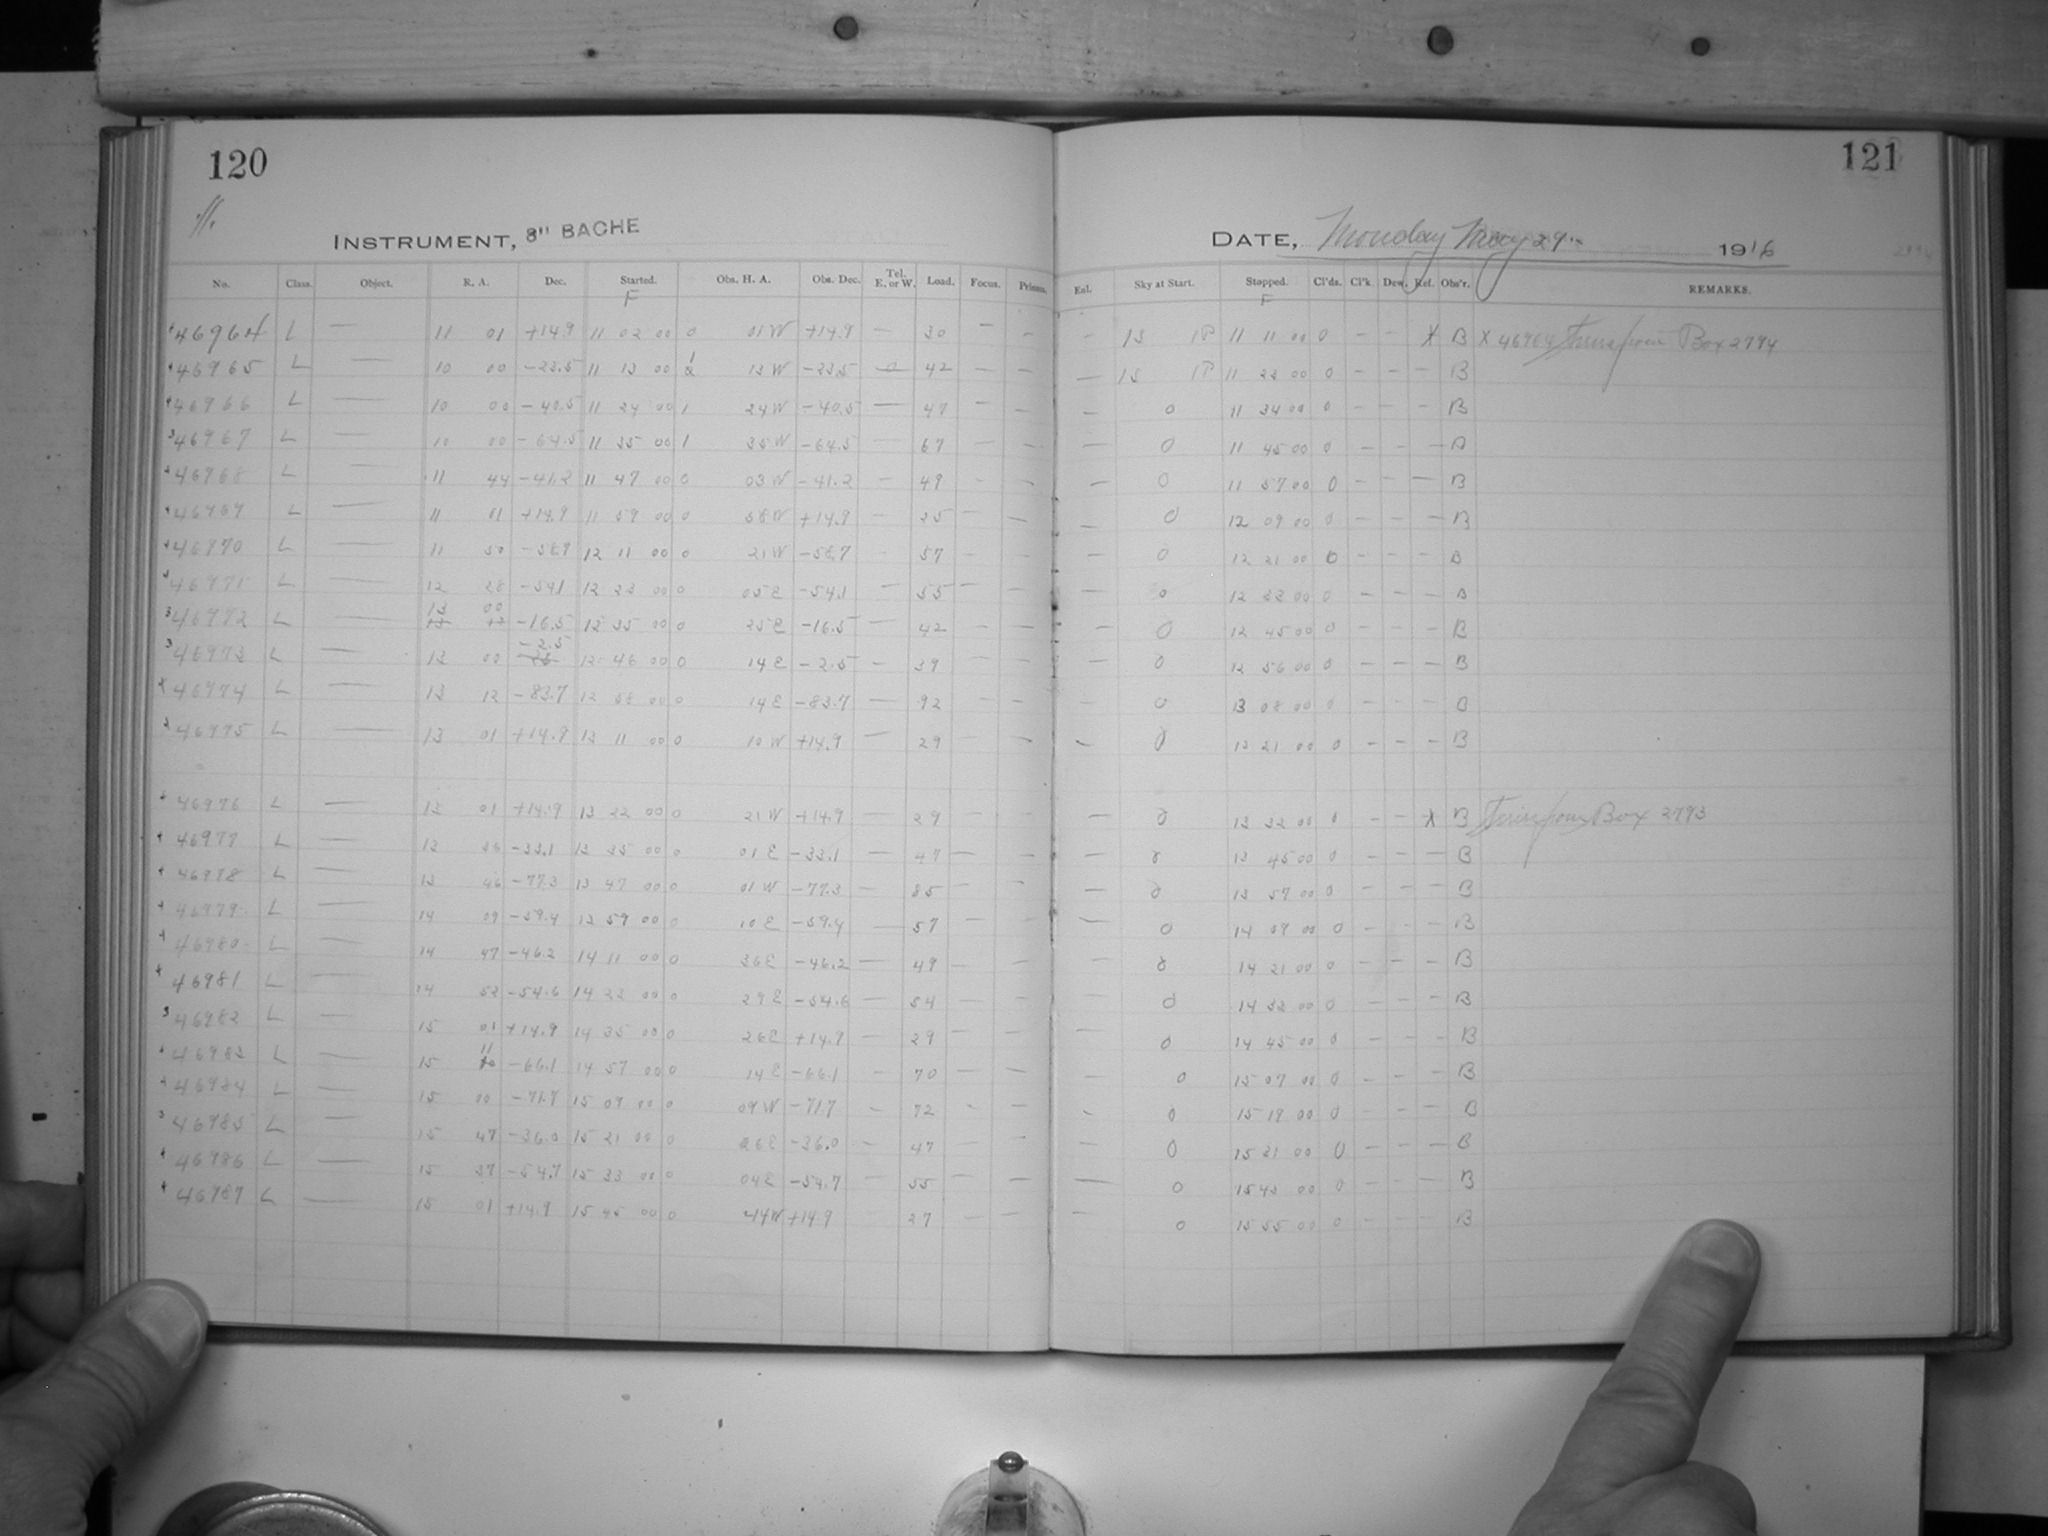 120
INSTRUMENT, 8" BACHE
No. Class. Object. R. A. Dec. Started. Obs. H. A. Obs. Dec. Tel. E. or W. Load. Focus. Prisms.
F
46964 L — 11 01 +14.9 11 02 00 0 01 W +14.9 — 30 — —
46965 L — 10 00 -23.5 11 13 00 1 13 W -23.5 — 42 — —
46966 L — 10 00 -40.5 11 24 00 1 24 W -40.5 — 47 — —
46967 L — 10 00 -64.5 11 35 00 1 35 W -64.5 — 67 — —
46968 L — 11 44 -41.2 11 47 00 0 03 W -41.2 — 49 — —
46969 L — 11 01 +14.9 11 59 00 0 58 W +14.9 — 25 — —
46970 L — 11 50 -58.7 12 11 00 0 21 W -58.7 - 57 - —
46971 L — 12 28 -54.1 12 23 00 0 05 E -54.1 — 55 — —
46972 L — 13 00 -16.5 12 35 00 0 25 E -16.5 — 42 — —
46973 L — 13 00 -2.5 12 46 00 0 14 E -2.5 — 39 — —
46974 L — 13 12 -83.7 12 58 00 0 14 E -83.7 — 92 — —
46975 L — 13 01 +14.9 13 11 00 0 10 W +14.9 — 29 — —
46976 L — 13 01 +14.9 13 22 00 0 21 W +14.9 — 29 — —
46977 L — 13 36 -33.1 13 35 00 0 01 E -33.1 — 47 — —
46978 L — 13 46 -77.3 13 47 00 0 01 W -77.3 — 85 — —
46979 L — 14 09 -59.4 13 59 00 0 10 E -59.4 — 57 — —
46980 L — 14 47 -46.2 14 11 00 0 36 E -46.2 — 49 — —
46981 L — 14 52 -54.6 14 23 00 0 29 E -54.6 — 54 — —
46982 L — 15 01 +14.9 14 35 00 0 26 E +14.9 — 29 — —
46983 L — 15 11 -66.1 14 57 00 0 14 E -66.1 — 70 — —
46984 L — 15 00 -71.7 15 09 00 0 09 W -71.7 — 72 - —
46985 L — 15 47 -36.0 15 21 00 0 26 E -36.0 — 47 — —
46986 L — 15 37 -54.7 15 33 00 0 04 E -54.7 — 55 — —
46987 L — 15 01 +14.9 15 45 00 0 44 W +14.9 27 — —
121
DATE, Monday May 29 1916
Eal. Sky at Start. Stopped. Cl'ds. Cl'k. Dew. Ref. Obs'r. REMARKS.
F
- 1S 1P 11 11 00 0 — — X B X 46964 from Box 2794
— 1S 1P 11 23 00 0 — — — B
— 0 11 34 00 0 — — — B
— 0 11 45 00 0 — — — B
— 0 11 57 00 0 — — — B
— 0 12 09 00 0 — — — B
— 0 12 21 00 0 — — — B
— 0 12 33 00 0 — — — B
— 0 12 45 00 0 — — — B
— 0 12 56 00 0 — — — B
— 0 13 08 00 0 — — — B
— 0 13 21 00 0 — — — B
— 0 13 32 00 0 — — X B from Box 2793
— 0 13 45 00 0 — — — B
— 0 13 57 00 0 — — — B
— 0 14 09 00 0 — — — B
— 0 14 21 00 0 — — — B
— 0 14 33 00 0 — — — B
— 0 14 45 00 0 — — — B
— 0 15 07 00 0 — — — B
- 0 15 19 00 0 — — — B
— 0 15 21 00 0 — — — B
— 0 15 43 00 0 — — — B
— 0 15 55 00 0 — — — B